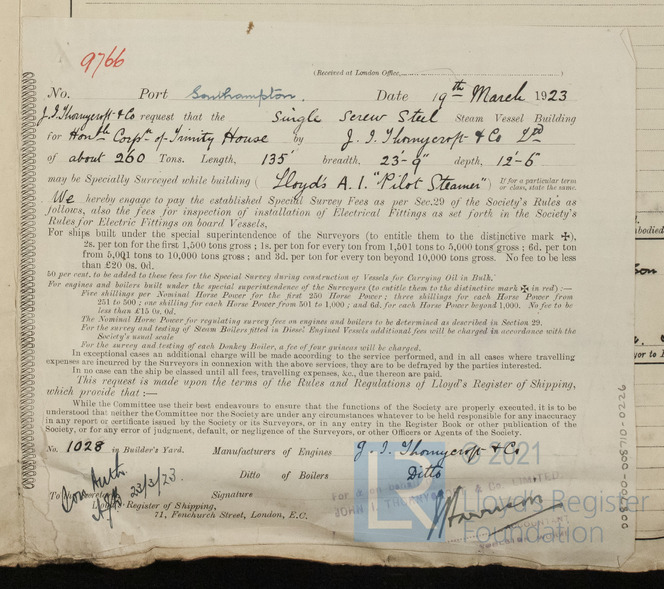 9766
(Received at London Office, )
No. Port Southampton. Date 19th March 1923
J. I. Thornycroft & Co request that the Single Screw Steel Steam Vessel Building
for Honble Corpn of Trinity House by J. I. Thornycroft & Co Ltd
of about 260 Tons. Length, 135' breadth, 23'-9" depth, 12'-6"
may be Specially Surveyed while building ( Lloyd's A. 1. "Pilot Steamer" ) If for a particular term
or class, state the same.
We hereby engage to pay the established Special Survey Fees as per Sec.29 of the Society's Rules as
follows, also the fees for inspection of installation of Electrical Fittings as set forth in the Society's
Rules for Electric Fittings on board Vessels,
For ships built under the special superintendence of the Surveyors (to entitle them to the distinctive mark ✠),
2s. per ton for the first 1,500 tons gross; 1s. per ton for every ton from 1,501 tons to 5,000 tons gross; 6d. per ton
from 5,001 tons to 10,000 tons gross; and 3d. per ton for every ton beyond 10,000 tons gross. No fee to be less
than £20 0s. 0d.
50 per cent. to be added to these fees for the Special Survey during construction of Vessels for Carrying Oil in Bulk.
For engines and boilers built under the special superintendence of the Surveyors (to entitle them to the distinctive mark ✠ in red) :—
Five shillings per Nominal Horse Power for the first 250 Horse Power; three shillings for each Horse Power from
251 to 500; one shilling for each Horse Power from 501 to 1,000; and 6d. for each Horse Power beyond 1,000. No fee to be
less than £15 0s. 0d.
The Nominal Horse Power for regulating survey fee on engines and boilers to be determined as described in Section 29.
For the survey and testing of Steam Boilers fitted in Diesel Engined Vessels additional fees will be charged in accordance with the
Society's usual scale
For the survey and testing of each Donkey Boiler, a fee of four guineas will be charged.
In exceptional cases an additional charge will be made according to the service performed, and in all cases where travelling
expenses are incurred by the Surveyors in connection with the above services, they are to be defrayed by the parties interested.
In no case can the ship be classed until all fees, travelling expenses, &c., due thereon are paid.
This request is made upon the terms of the Rules and Regulations of Lloyd's Register of Shipping,
which provide that :—
While the Committee use their best endeavours to ensure that the functions of the Society are properly executed, it is to be
understood that neither the Committee nor the Society are under any circumstances whatever to be held responsible for any inaccuracy
in any report or certificate issued by the Society or its Surveyors, or in any entry in the Register Book or other publication of the
Society, or for any error of judgment, default, or negligence of the Surveyors, or other Officers or Agents of the Society.
No. 1028 in Builder's Yard. Manufacturers of Engines J. I. Thornycroft & Co
Ditto of Boilers Ditto
23/3/23
Signature
Lloyd's Register of Shipping,
71, Fenchurch Street, London, E.C.
JOHN I. THORNYCROFT & Co. LIMITED.
© 2021
LR
Lloyd's Register
Foundation
008700-008710-0226